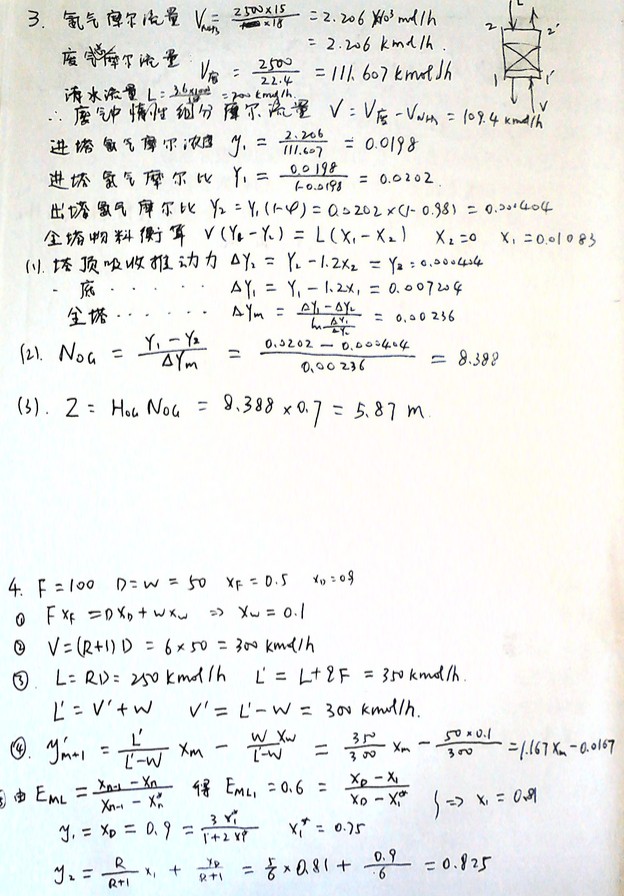 3. 氨气摩尔流量 V_NH3 = 2500×15 / ×18 = 2.206 ×10³ mol/h
= 2.206 kmol/h.
废气摩尔流量 V废 = 2500/22.4 = 111.607 kmol/h
清水流量 L = 3.6×1000/18 = 200 kmol/h.
∴ 废气中惰性组分摩尔流量 V = V废 - V_NH3 = 109.4 kmol/h
进塔氨气摩尔浓度 y₁ = 2.206/111.607 = 0.0198
进塔氨气摩尔比 Y₁ = 0.0198/(1-0.0198) = 0.0202.
出塔氨气摩尔比 Y₂ = Y₁(1-φ) = 0.0202×(1-0.98) = 0.000404
全塔物料衡算 V(Y₁-Y₂) = L(X₁-X₂) X₂=0 X₁=0.01083
(1). 塔顶吸收推动力 ΔY₂ = Y₂ - 1.2x₂ = Y₂ = 0.000404
· 底 · · · · · · ΔY₁ = Y₁ - 1.2x₁ = 0.007204
全塔 · · · · · · ΔYm = (ΔY₁-ΔY₂)/(ln ΔY₁/ΔY₂) = 0.00236
(2). N_OG = (Y₁-Y₂)/ΔYm = (0.0202-0.000404)/0.00236 = 8.388
(3). Z = H_OG N_OG = 8.388×0.7 = 5.87 m.
2 L 2'
1 1' V
4. F=100 D=W=50 x_F=0.5 x_D=0.9
① Fx_F = Dx_D + Wx_W ⇒ x_W = 0.1
② V=(R+1)D = 6×50 = 300 kmol/h
③. L=RD=250 kmol/h L' = L+qF = 350 kmol/h.
L' = V'+W V' = L'-W = 300 kmol/h.
④. y'm+1 = L'/(L'-W) xm - Wx_W/(L'-W) = 350/300 xm - 50×0.1/300 = 1.167xm - 0.0167
由 E_ML = (x_n-1 - x_n)/(x_n-1 - x_n*) 得 E_ML1 = 0.6 = (x_D - x₁)/(x_D - x₁*) } ⇒ x₁ = 0.81
y₁ = x_D = 0.9 = 3x₁*/(1+2x₁*) x₁* = 0.75
y₂ = R/(R+1) x₁ + x_D/(R+1) = 5/6 × 0.81 + 0.9/6 = 0.825